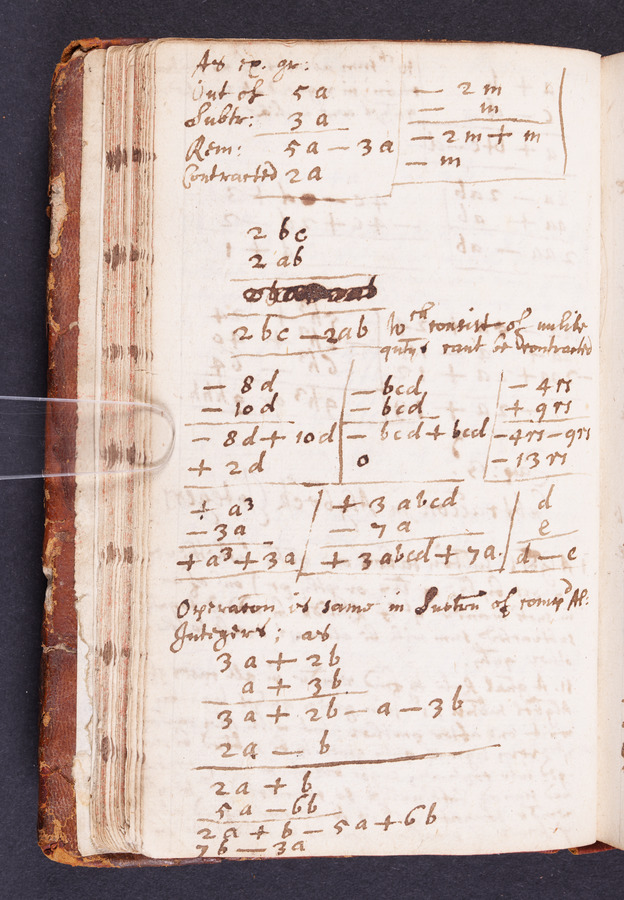 As ex. gr:
Out of 5a
Subtr: 3a
Rem: 5a — 3a
Contracted 2a
— 2m
— m
— 2m + m
— m
2bc
2ab
2bc — 2ab wch consist of unlike
qutys cant be contracted
— 8d
— 10d
— 8d + 10d
+ 2d
— bcd
— bcd
— bcd + bcd
0
— 4rs
+ 9rs
— 4rs — 9rs
— 13rs
+ a³
— 3a
+ a³ + 3a
+ 3abcd
— 7a
+ 3abcd + 7a
d
e
d — e
Operaton is same in Subtrn of compd Al:
Integers; as
3a + 2b
a + 3b
3a + 2b — a — 3b
2a — b
2a + b
5a — 6b
2a + b — 5a + 6b
7b — 3a